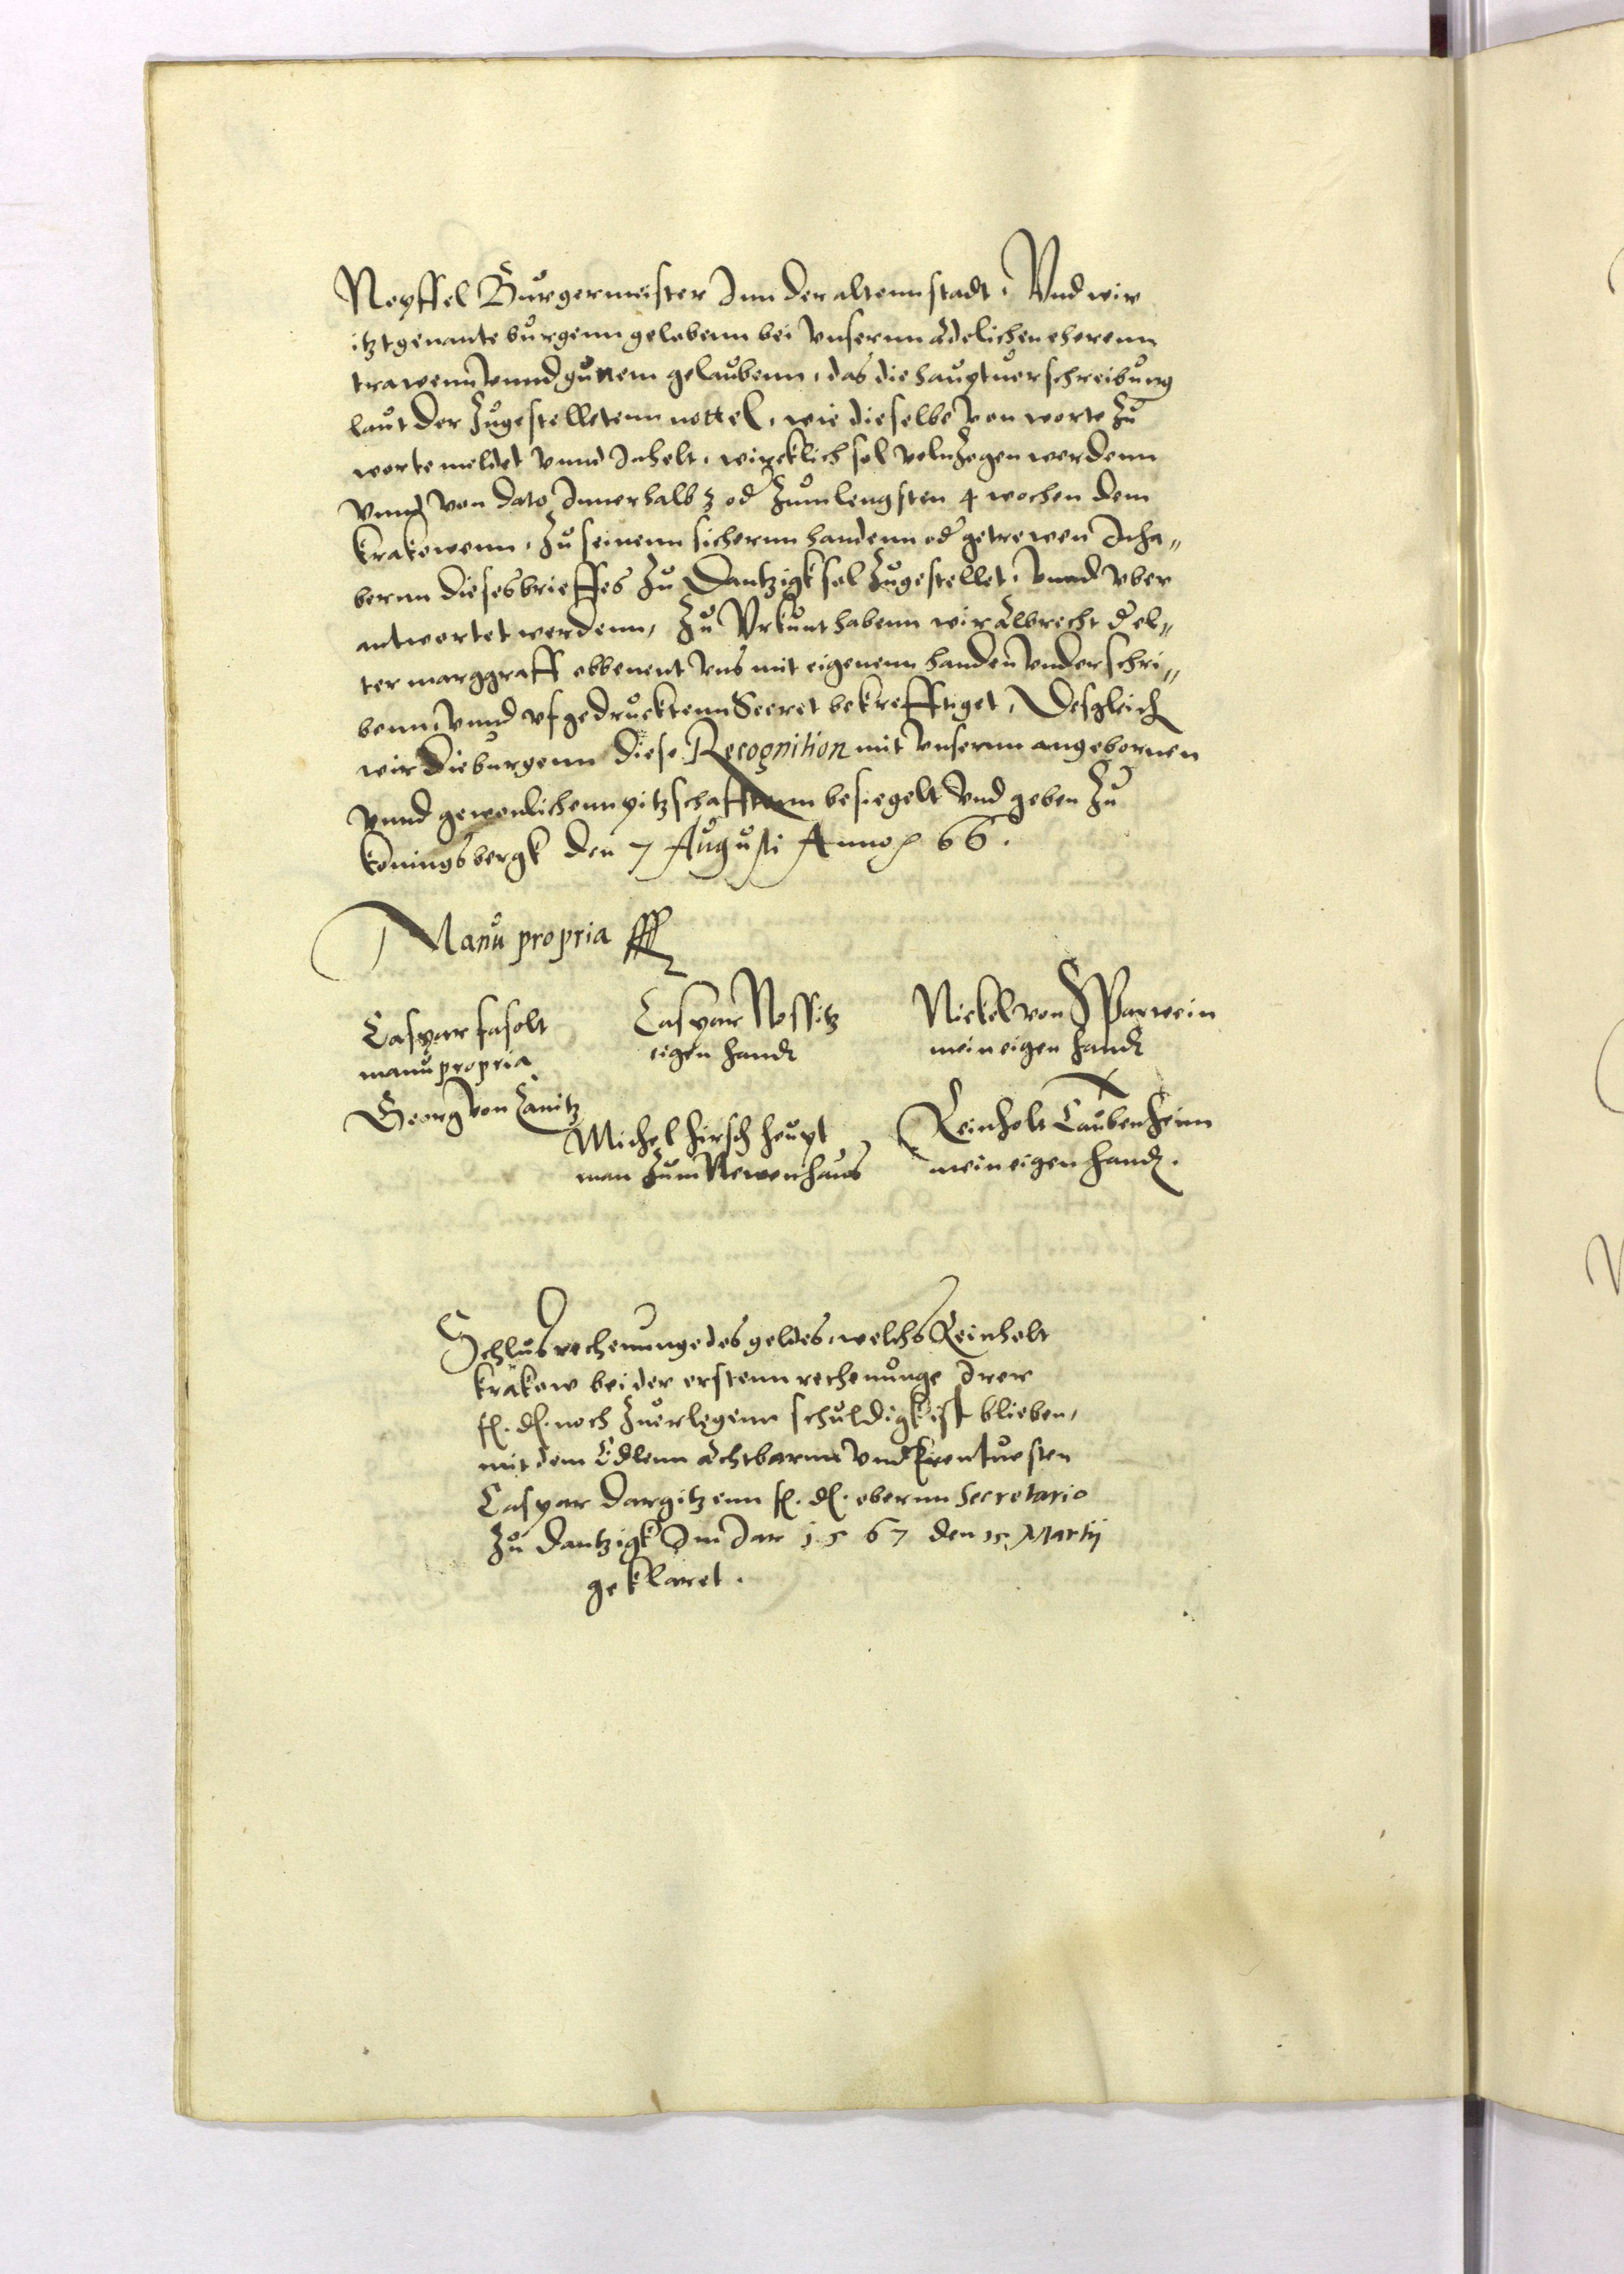 Neyssel Burgermeister Inn der altenn stadt. Vnd wir
itzt genante burgenn gelobenn bei vnsernn adelichen eherenn
trawenn vnnd guttem gelaubenn, das die hauptuerschreibung
laut der zugestelletenn nottel, wie dieselbe von worte zu
worte meldet vnnd Inhelt, wircklich sol volnzogen werdenn
vnnd von dato Innerhalb 3 od zum lengsten 4 wochen dem
krakowenn, zu seinenn sichernn handenn od getrewen Inha„
bernn dieses brieffes zu Dantzigk sol zugestellet, vnnd vber
antwortet werdenn, Zu Vrkunt habenn wir Albrecht d el„
ter marggraff obbenent vns mit eigenenn handen vnderschri„
benn, vnnd vfgedrucktenn Secret bekrefftiget, Desgleich
wir die burgenn diese Recognition mit vnsernn angebornen
vnnd gewonlichenn pitzschafftenn besiegelt vnd geben zu
konningsbergk den 7 Augusti Anno 66.
Manu propria
Caspar fasolt
manu propria
Caspar Nostitz
eigen handt
Nickel von Sparwein
mein eigen handt
Georg von Canitz
Michel hirsch heupt
man zum Newenhaus
Reinholt Caubenheim
mein eigen handt.
Schlus rechenunge des geldes, welchs Reinholt
krakow bei der erstenn rechenunge Irer
f. d. noch zuerlegenn schuldigk ist blieben,
mit dem Edlenn Achtbarnn vnd Erentuesten
Caspar Dargitzenn f. d. obernn Secretario
zu Dantzigk Im Jar 1567 den 15 Martij
geklaret.